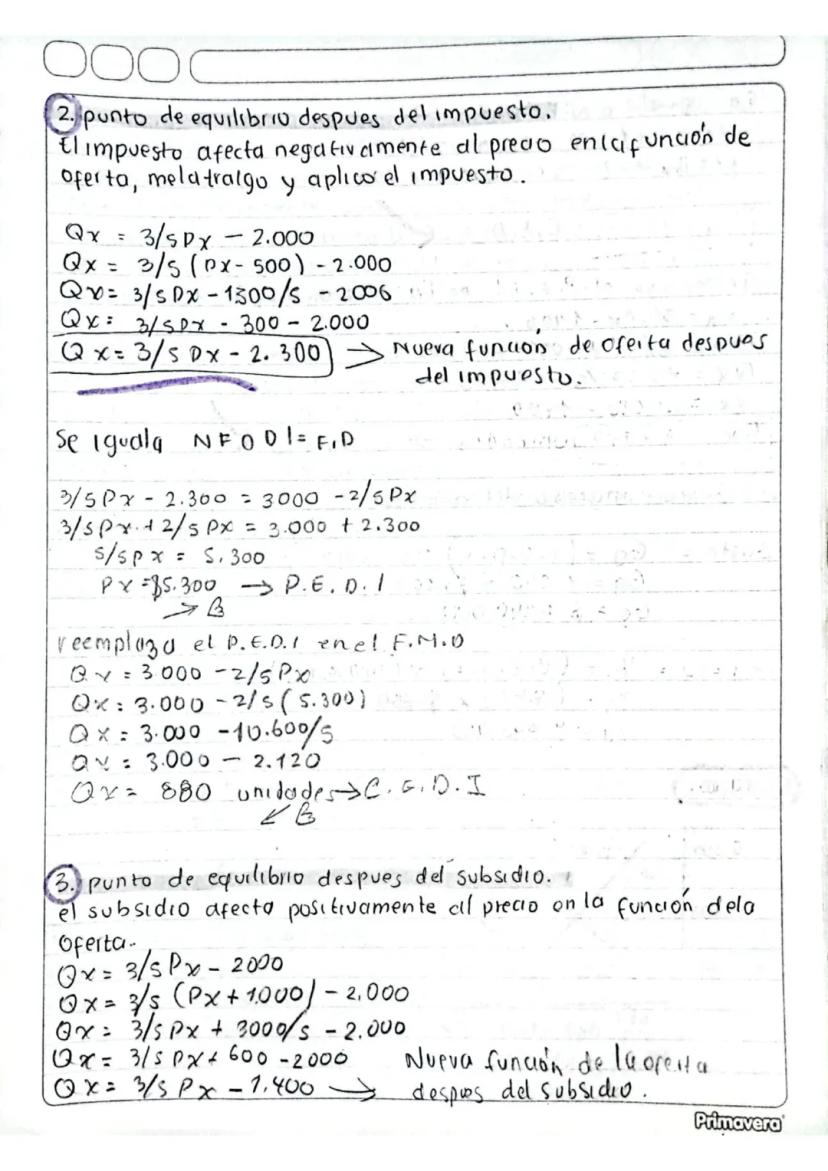 2. punto de equilibrio despues del impuesto.
El impuesto afecta negativamente al precio en la función de
oferta, me la traigo y aplico el impuesto.
Qx = 3/5 Px - 2.000
Qx = 3/5 (Px - 500) - 2.000
Qx = 3/5 Px - 1500/5 - 2000
Qx = 3/5 Px - 300 - 2.000
Qx = 3/5 Px - 2.300 → Nueva función de oferta despues
del impuesto.
Se iguala NFODI = F.D
3/5 Px - 2.300 = 3000 - 2/5 Px
3/5 Px + 2/5 Px = 3.000 + 2.300
5/5 px = 5.300
Px = $5.300 → P.E.D.I
→ B
reemplazo el P.E.D.I en el F.M.O
Qx = 3.000 - 2/5 Px
Qx = 3.000 - 2/5 (5.300)
Qx = 3.000 - 10.600/5
Qx = 3.000 - 2.120
Qx = 880 unidades → C.E.D.I
↙ B
3. punto de equilibrio despues del subsidio.
el subsidio afecta positivamente al precio en la función dela
Oferta.
Qx = 3/5 Px - 2000
Qx = 3/5 (Px + 1.000) - 2.000
Qx = 3/5 Px + 3000/5 - 2.000
Qx = 3/5 Px + 600 - 2000 Nueva función de la oferta
Qx = 3/5 Px - 1.400 → despues del subsidio.
Primavera